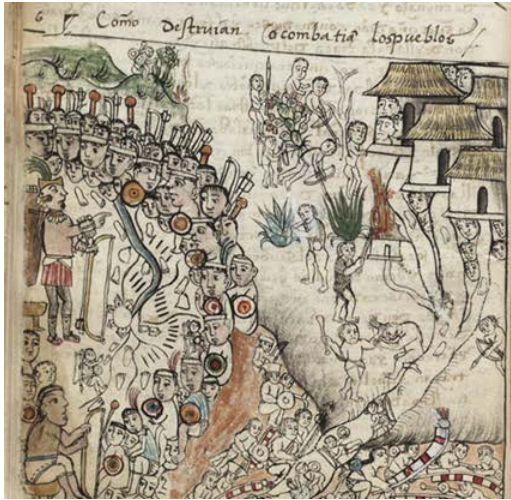 6 7 Como Destruian o combatiā los pueblos